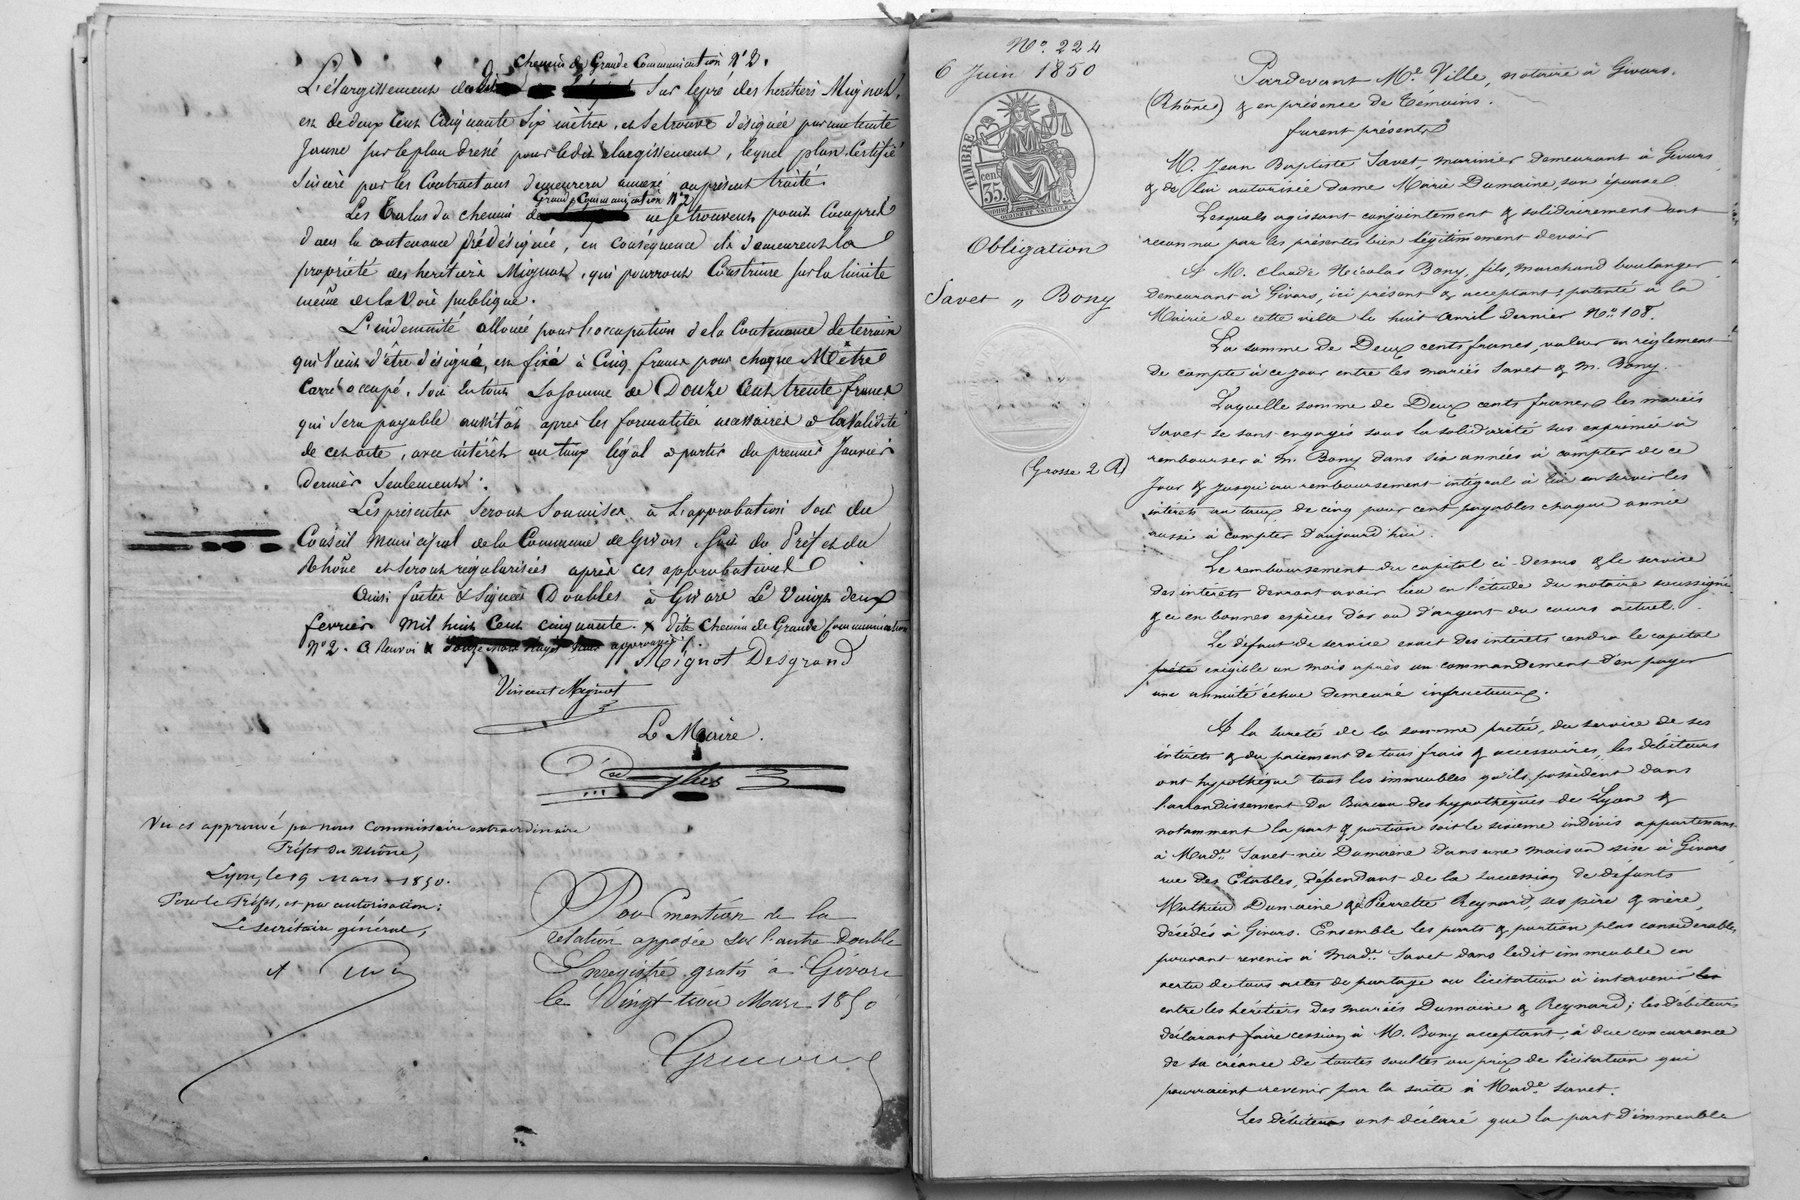 Chemin de Grande Communication N° 2.
L'élargissement dudit sur le pré des héritiers Mignot,
est de deux Cent Cinquante Six mètres, et se trouve désignée par une teinte
Jaune sur le plan dressé pour ledit élargissement, lequel plan Certifié
Sincère par les Contractans demeurera annexé au présent traité.
Grande Communication N° 2
Les Talus du chemin de ne se trouvent point Compris
dans la contenance prédésignée, en conséquence ils demeurent la
propriété des héritiers Mignot, qui pourront Construire sur la limite
même de la Voie publique.
L'indemnité allouée pour l'occupation de la Contenance de terrain
qui Vient d'être désignée, est fixée à Cinq francs pour chaque Mètre
Carré occupé, Soit en tout La Somme de Douze Cent trente francs
qui sera payable aussitôt après les formalités nécessaires à la Validité
de cet acte, avec intérêts au taux légal à partir du premier Janvier
dernier Seulement.
Les présentes Seront Soumises à L'approbation soit du
Conseil Municipal de la Commune de Givors, soit du Préfet du
Rhône et Seront régularisées après ces approbations
Ainsi faites & Signées Doubles à Givors Le Vingt deux
fevrier Mil huit Cent Cinquante. x dite Chemin de Grande Communication
N° 2. approuvés
Mignot Desgrand
Vincent Mignot
Le Maire.
Vu et approuvé par nous Commissaire extraordinaire
Préfet du Rhône,
Lyon, le 19 Mars 1850.
Pour le Préfet, et par autorisation:
Le secrétaire général,
Pour mention de la
relation apposée sur l'autre double
Enregistré gratis à Givors
le Vingt trois Mars 1850
N°. 224
6 Juin 1850
TIMBRE
35 cent
Obligation
Savet „ Bony
(Grosse 2 R)
Pardevant Me. Ville, notaire à Givors.
(Rhône) & en présence de Témoins.
furent présents
M. Jean Baptiste Savet marinier demeurant à Givors
& de lui autorisée dame Marie Dumaine, son épouse
Lesquels agissant conjointement & solidairement ont
reconnu par les présentes bien légitimement devoir
A M. Claude Nicolas Bony, fils, marchand boulanger
demeurant à Givors, ici présent & acceptant, patenté à la
Mairie de cette ville le huit Avril dernier N°. 108.
La somme de Deux cents francs, valeur en règlement
de compte à ce jour entre les mariés Savet & M. Bony.
Laquelle somme de Deux cents francs les mariés
Savet se sont engagés sous la solidarité sus exprimée à
rembourser à M. Bony dans six années à compter de ce
Jour & jusqu'au remboursement intégral à lui en servir les
intérêts au taux de cinq pour cent payables chaque année
aussi à compter d'aujourd'hui.
Le remboursement du capital ci-dessus & le service
des intérêts devront avoir lieu en l'étude du notaire soussigné
& ce en bonnes espèces d'or ou d'argent du cours actuel.
Le défaut de service exact des intérêts rendra le capital
prêté exigible un mois après un commandement d'en payer
une annuité échue demeuré infructueux.
A la sureté de la somme pretée, du service de ses
intérêts & du paiement de tous frais & accessoires, les débiteurs
ont hypothéqué tous les immeubles qu'ils possèdent dans
l'arrondissement du Bureau des hypothèques de Lyon &
notamment la part & portion soit le sixième indivis appartenant
à Made. Savet née Dumaine dans une maison sise à Givors
rue des Etables, dépendant de la succession de défunts
Mathieu Dumaine & Pierrette Reynard, ses père & mère,
décédés à Givors. Ensemble les parts & portion plus considérables
pouvant revenir à Made. Savet dans ledit immeuble en
vertu de tous actes de partage ou licitation à intervenir
entre les héritiers des mariés Dumaine & Reynard; les débiteurs
déclarant faire cession à M. Bony acceptant, à due concurrence
de sa créance de toutes soultes ou prix de licitation qui
pourraient revenir par la suite à Made. Savet.
Les débiteurs ont déclaré que la part d'immeuble